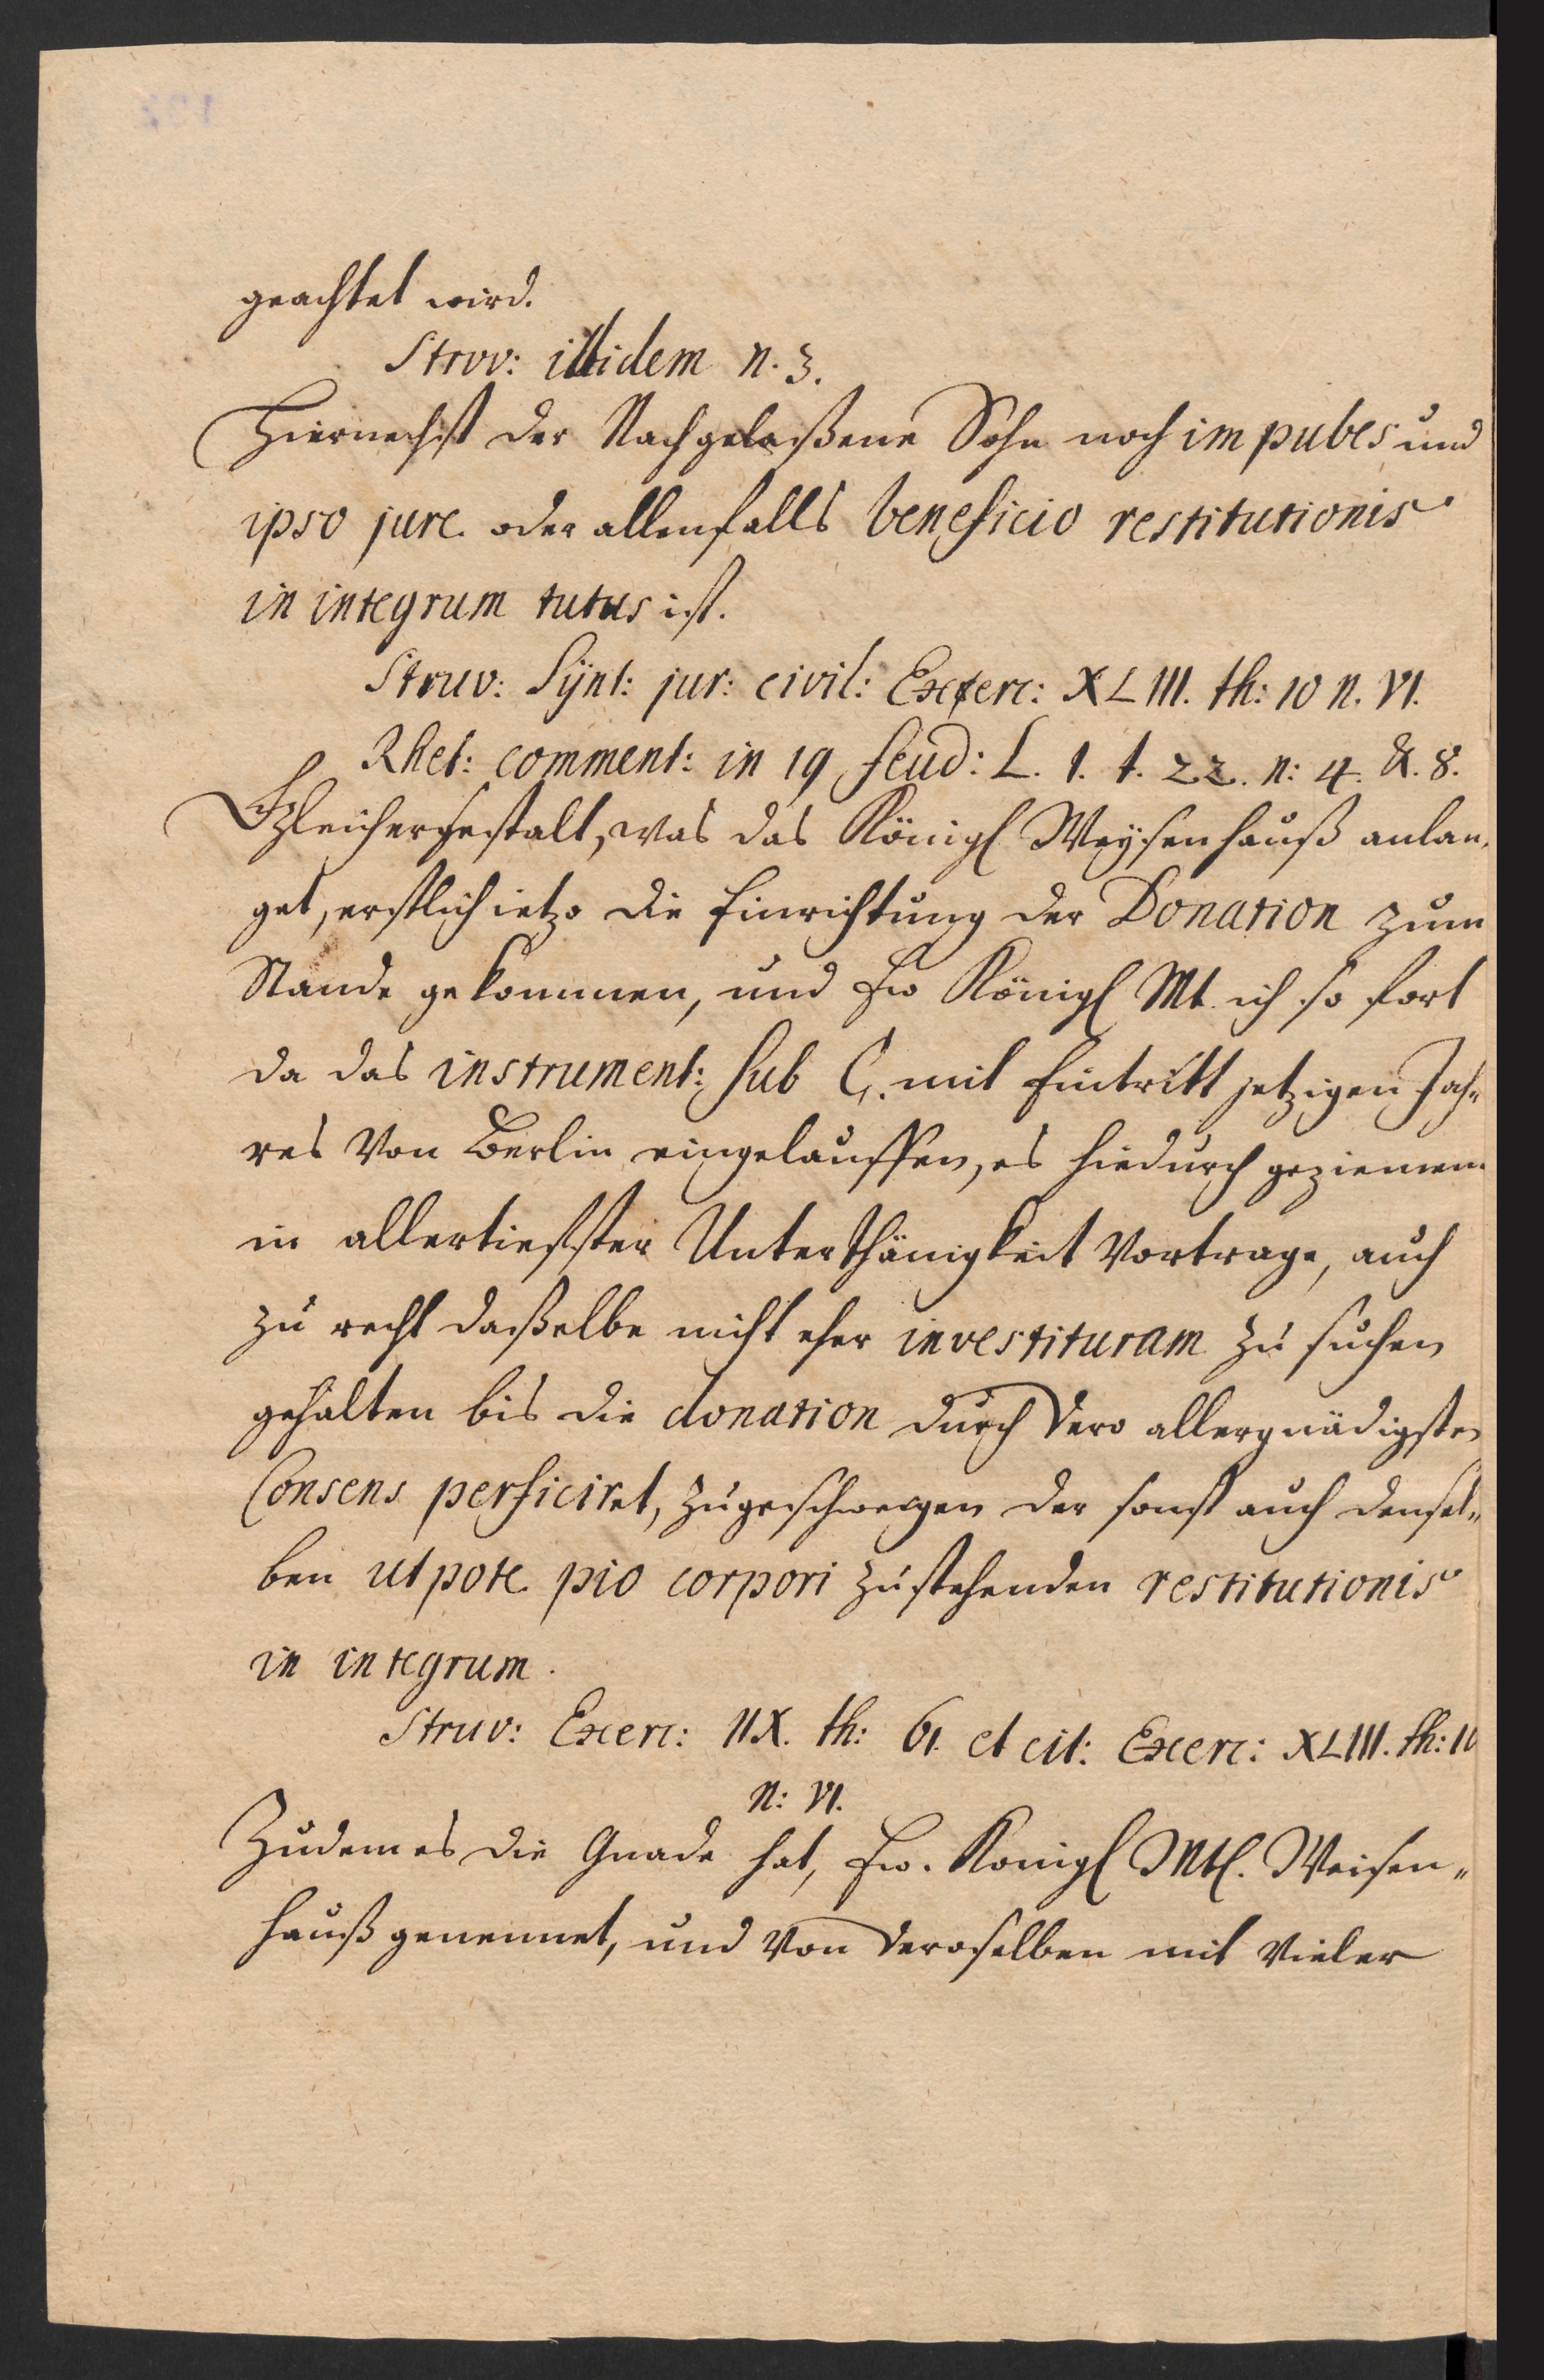 geachtet wird.
Struv: ibidem n. 3.
Hiernechst der Nachgelaßene Sohn noch impubes und
ipso jure oder allenfalls beneficio restitutionis
in integrum tutus ist.
Struv: Sÿnt: jur: civil: Exerc: XLIII. th: 10 n. VI.
Rhet: comment: in 19 feud: L. 1. t. 22. n: 4. &. 8.
Gleichergestalt, was das Königl Weysenhauß anlan,
get, erstlich ietzo die Einrichtung der Donation zum
Stande gekommen, und Ew Königl Mt. ich so fort
da das instrument: sub C. mit Eintritt jetzigen Jah„
res Von Berlin eingelauffen, es hiedurch geziemen
in allertieffster Unterthänigkeit Vortrage, auch
zu recht daßelbe nicht eher investituram zu suchen
gehalten bis die donation durch Dero allergnädigsten
Consens perficiret, zugeschweigen der sonst auch densel„
ben utpote pio corpori zustehenden restitutionis
in integrum.
Struv: Exerc: IIX. th: 61. et cit: Exerc: XLIII. th: 10
n: VI.
Zudem es die Gnade hat, Ew. Konigl Mtl. Weisen„
hauß genennet, und Von Deroselben mit Vieler